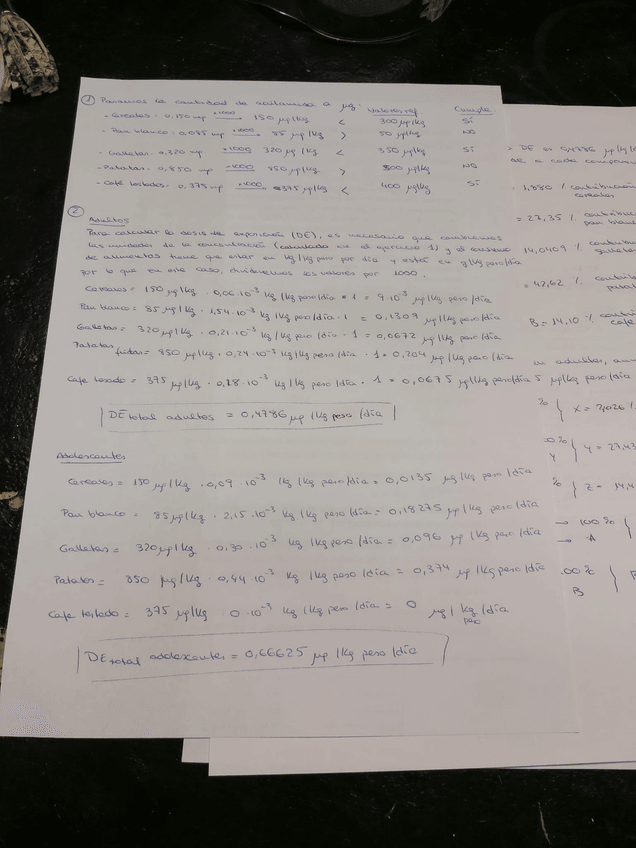 ① Pasamos la cantidad de acrilamida a µg: Valores ref Cumple
- Cereales: 0,150 mg x1000 → 150 µg/kg < 300 µg/kg SÍ
- Pan blanco: 0,085 mg x1000 → 85 µg/kg > 50 µg/kg NO
- Galletas: 0,320 mg x1000 → 320 µg/kg < 350 µg/kg SÍ
- Patatas: 0,850 mg x1000 → 850 µg/kg > 500 µg/kg NO
- Café tostado: 0,375 mg x1000 → 375 µg/kg < 400 µg/kg SÍ
② Adultos
Para calcular la dosis de exposición (DE), es necesario que cambiemos
las unidades de la concentración (calculado en el ejercicio 1) y el consumo
de alimentos tiene que estar en kg/kg peso por día y están en g/kg peso/día
por lo que en este caso, dividiremos los valores por 1000.
Cereales = 150 µg/kg · 0,06·10⁻³ kg/kg peso/día · 1 = 9·10⁻³ µg/kg peso/día
Pan blanco = 85 µg/kg · 1,54·10⁻³ kg/kg peso/día · 1 = 0,1309 µg/kg peso/día
Galletas = 320 µg/kg · 0,21·10⁻³ kg/kg peso/día · 1 = 0,0672 µg/kg peso/día
Patatas fritas = 850 µg/kg · 0,24·10⁻³ kg/kg peso/día · 1 = 0,204 µg/kg peso/día
Café tosado = 375 µg/kg · 0,18·10⁻³ kg/kg peso/día · 1 = 0,0675 µg/kg peso/día
DE total adultos = 0,4786 µg/kg peso/día
Adolescentes
Cereales = 150 µg/kg · 0,09·10⁻³ kg/kg peso/día = 0,0135 µg/kg peso/día
Pan blanco = 85 µg/kg · 2,15·10⁻³ kg/kg peso/día = 0,18275 µg/kg peso/día
Galletas = 320 µg/kg · 0,30·10⁻³ kg/kg peso/día = 0,096 µg/kg peso/día
Patatas = 850 µg/kg · 0,44·10⁻³ kg/kg peso/día = 0,374 µg/kg peso/día
Café tostado = 375 µg/kg 0·10⁻³ kg/kg peso/día = 0 µg/kg peso/día
DE total adolescentes = 0,66625 µg/kg peso/día
= DE es 0,4786 µg/kg
1,880 %
= 27,35 %
14,0409 %
= 42,62 %
B = 14,10 %
5 µg/kg peso/día
% } X = 2,026 %
00 % Y } Y = 27,43
% } Z = 14,4
→ 100 %
→ A
,00 %
B